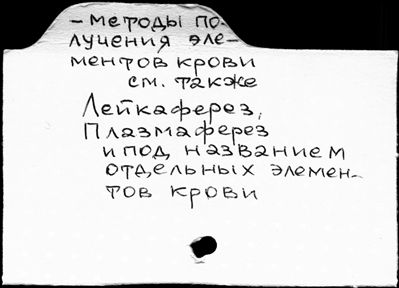 - методы по-
лучения эле-
ментов крови
см. также
Лейкаферез,
Плазмаферез
и под названием
отдельных элемен-
тов крови